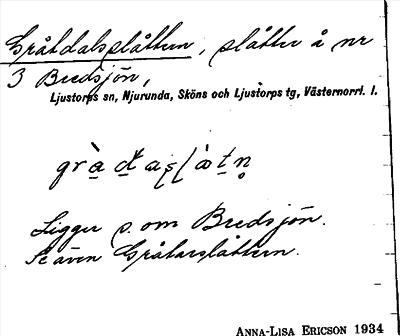 Gråtdalsslåttern, slåtter å nr
3 Bredsjön,
Ljustorps sn, Njurunda, Sköns och Ljustorps tg, Västernorrl. l.
Ligger s. om Bredsjön.
Se även Gråtarslåttern.
ANNA-LISA ERICSON 1934